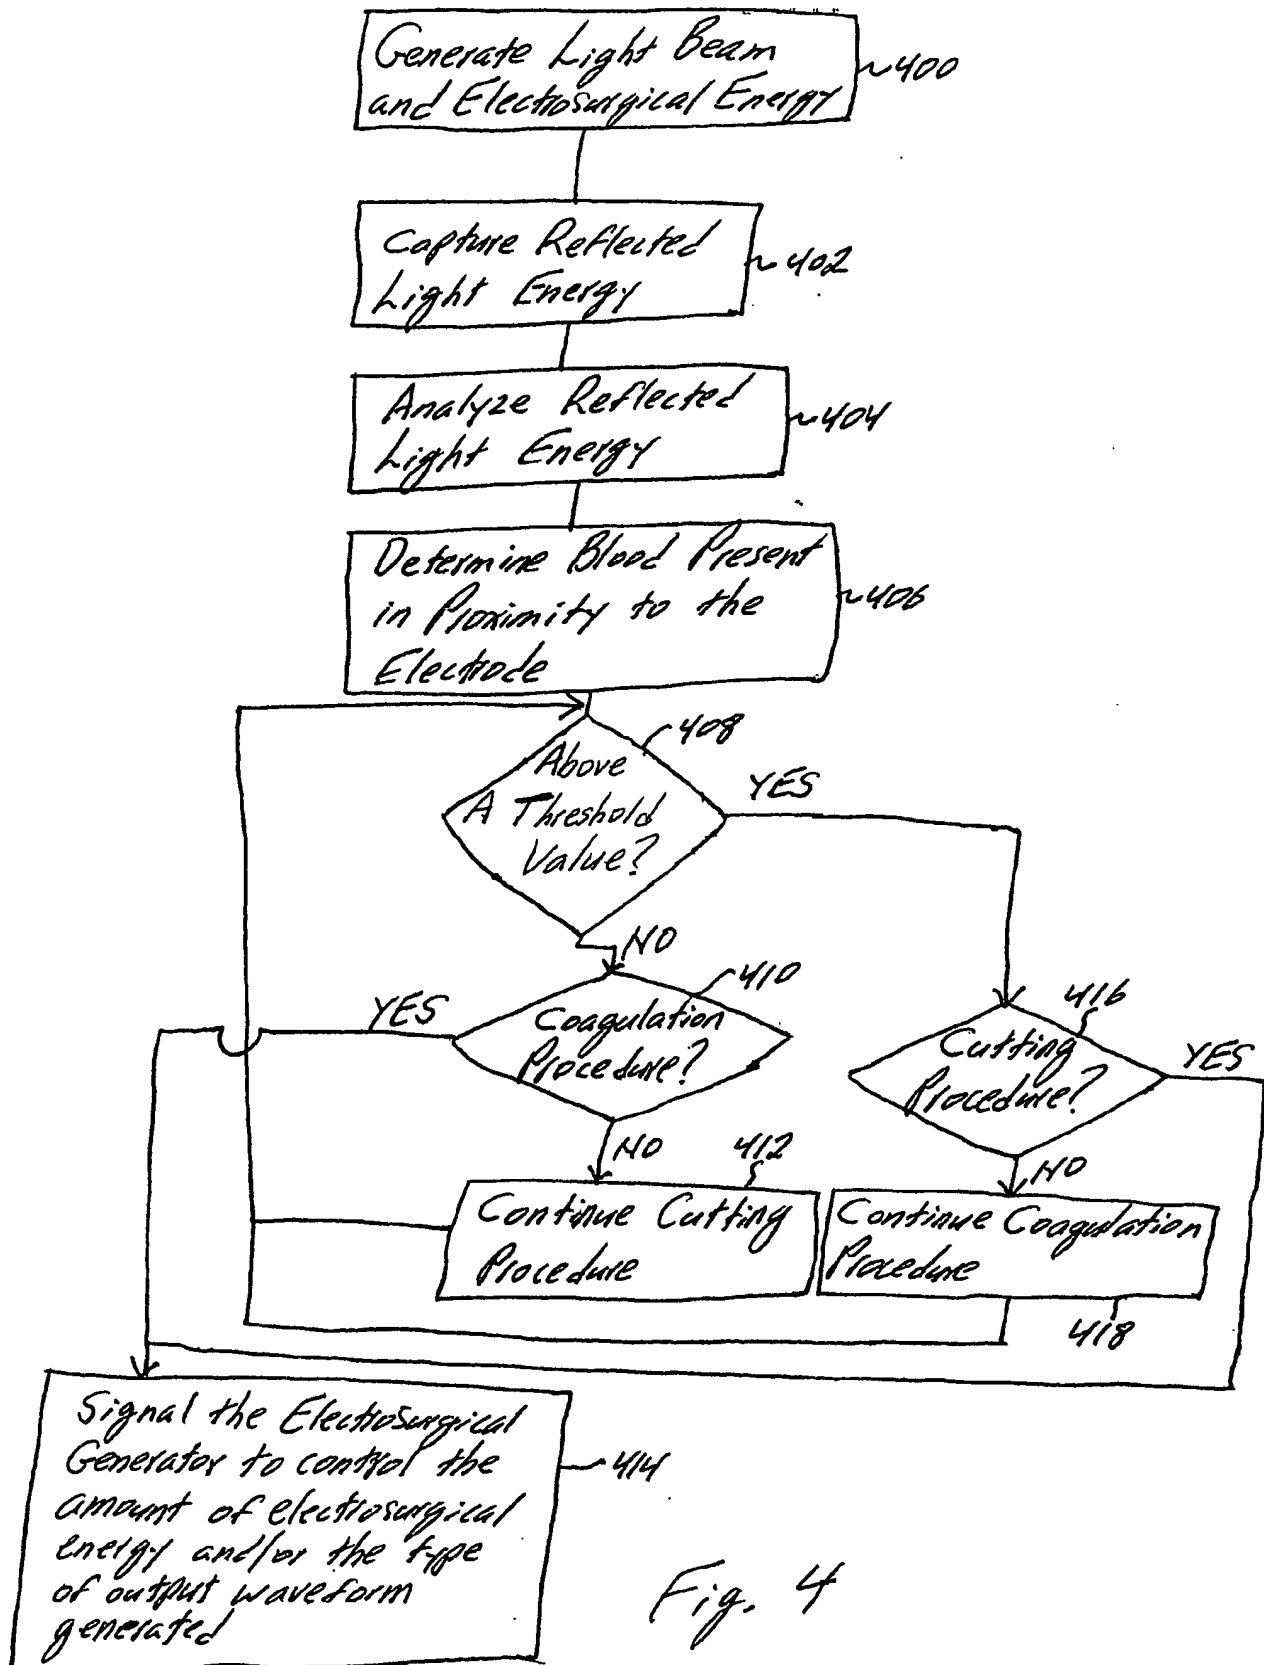 Generate Light Beam
and Electrosurgical Energy
~400
Capture Reflected
Light Energy
~402
Analyze Reflected
Light Energy
~404
Determine Blood Present
in Proximity to the
Electrode
~406
408
Above
A Threshold
Value?
YES
NO
410
YES
Coagulation
Procedure?
416
Cutting
Procedure?
YES
NO
412
NO
Continue Cutting
Procedure
Continue Coagulation
Procedure
418
Signal the Electrosurgical
Generator to control the
amount of electrosurgical
energy and/or the type
of output waveform
generated
414
Fig. 4